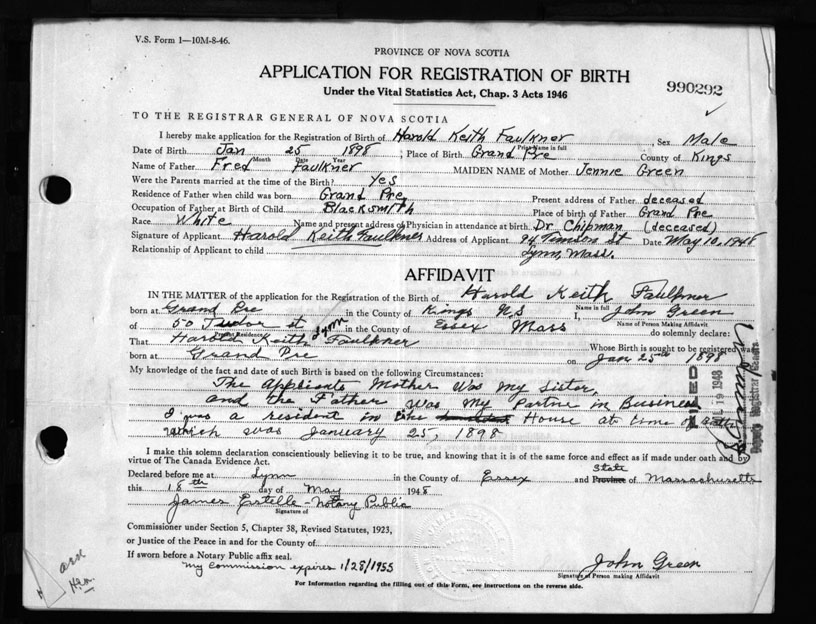 V.S. Form 1—10M-8-46.
PROVINCE OF NOVA SCOTIA
APPLICATION FOR REGISTRATION OF BIRTH
990292
Under the Vital Statistics Act, Chap. 3 Acts 1946
TO THE REGISTRAR GENERAL OF NOVA SCOTIA
I hereby make application for the Registration of Birth of Harold Keith Faulkner, Sex Male
Print Name in full
Date of Birth Jan 25 1898, Place of Birth Grand Pre County of Kings
Month Date Year
Name of Father Fred Faulkner MAIDEN NAME of Mother Jennie Green
Were the Parents married at the time of the Birth? Yes
Residence of Father when child was born Grand Pre Present address of Father deceased
Occupation of Father at Birth of Child Blacksmith Place of birth of Father Grand Pre
Race White Name and present address of Physician in attendance at birth. Dr Chipman (deceased)
Signature of Applicant Harold Keith Faulkner Address of Applicant St Date May 10, 1948
Relationship of Applicant to child Lynn, Mass.
AFFIDAVIT
IN THE MATTER of the application for the Registration of Birth of Harold Keith Faulkner
Name in full
born at Grand Pre in the County of Kings NS I, John Green
Name of Person Making Affidavit
of 50 Tudor st Lynn in the County of Essex Mass do solemnly declare:
Residence
That Harold Keith Faulkner Whose Birth is sought to be registered was
born at Grand Pre on Jan 25th 1898
My knowledge of the fact and date of such Birth is based on the following Circumstances:
The Applicants Mother Was My Sister,
and the Father was My Partner in Business
I was a resident in the House at time of birth
which was January 25, 1898
FILED
19 1948
Deputy Registrar General
I make this solemn declaration conscientiously believing it to be true, and knowing that it is of the same force and effect as if made under oath and by
virtue of The Canada Evidence Act.
Declared before me at Lynn in the County of Essex and Province State of Massachusetts
this 18th day of May 1948
James Estelle - Notary Public
Signature of
Commissioner under Section 5, Chapter 38, Revised Statutes, 1923,
or Justice of the Peace in and for the County of
If sworn before a Notary Public affix seal.
My Commission expires 1/28/1955
John Green
Signature of Person making Affidavit
For Information regarding the filling out of this Form, see instructions on the reverse side.